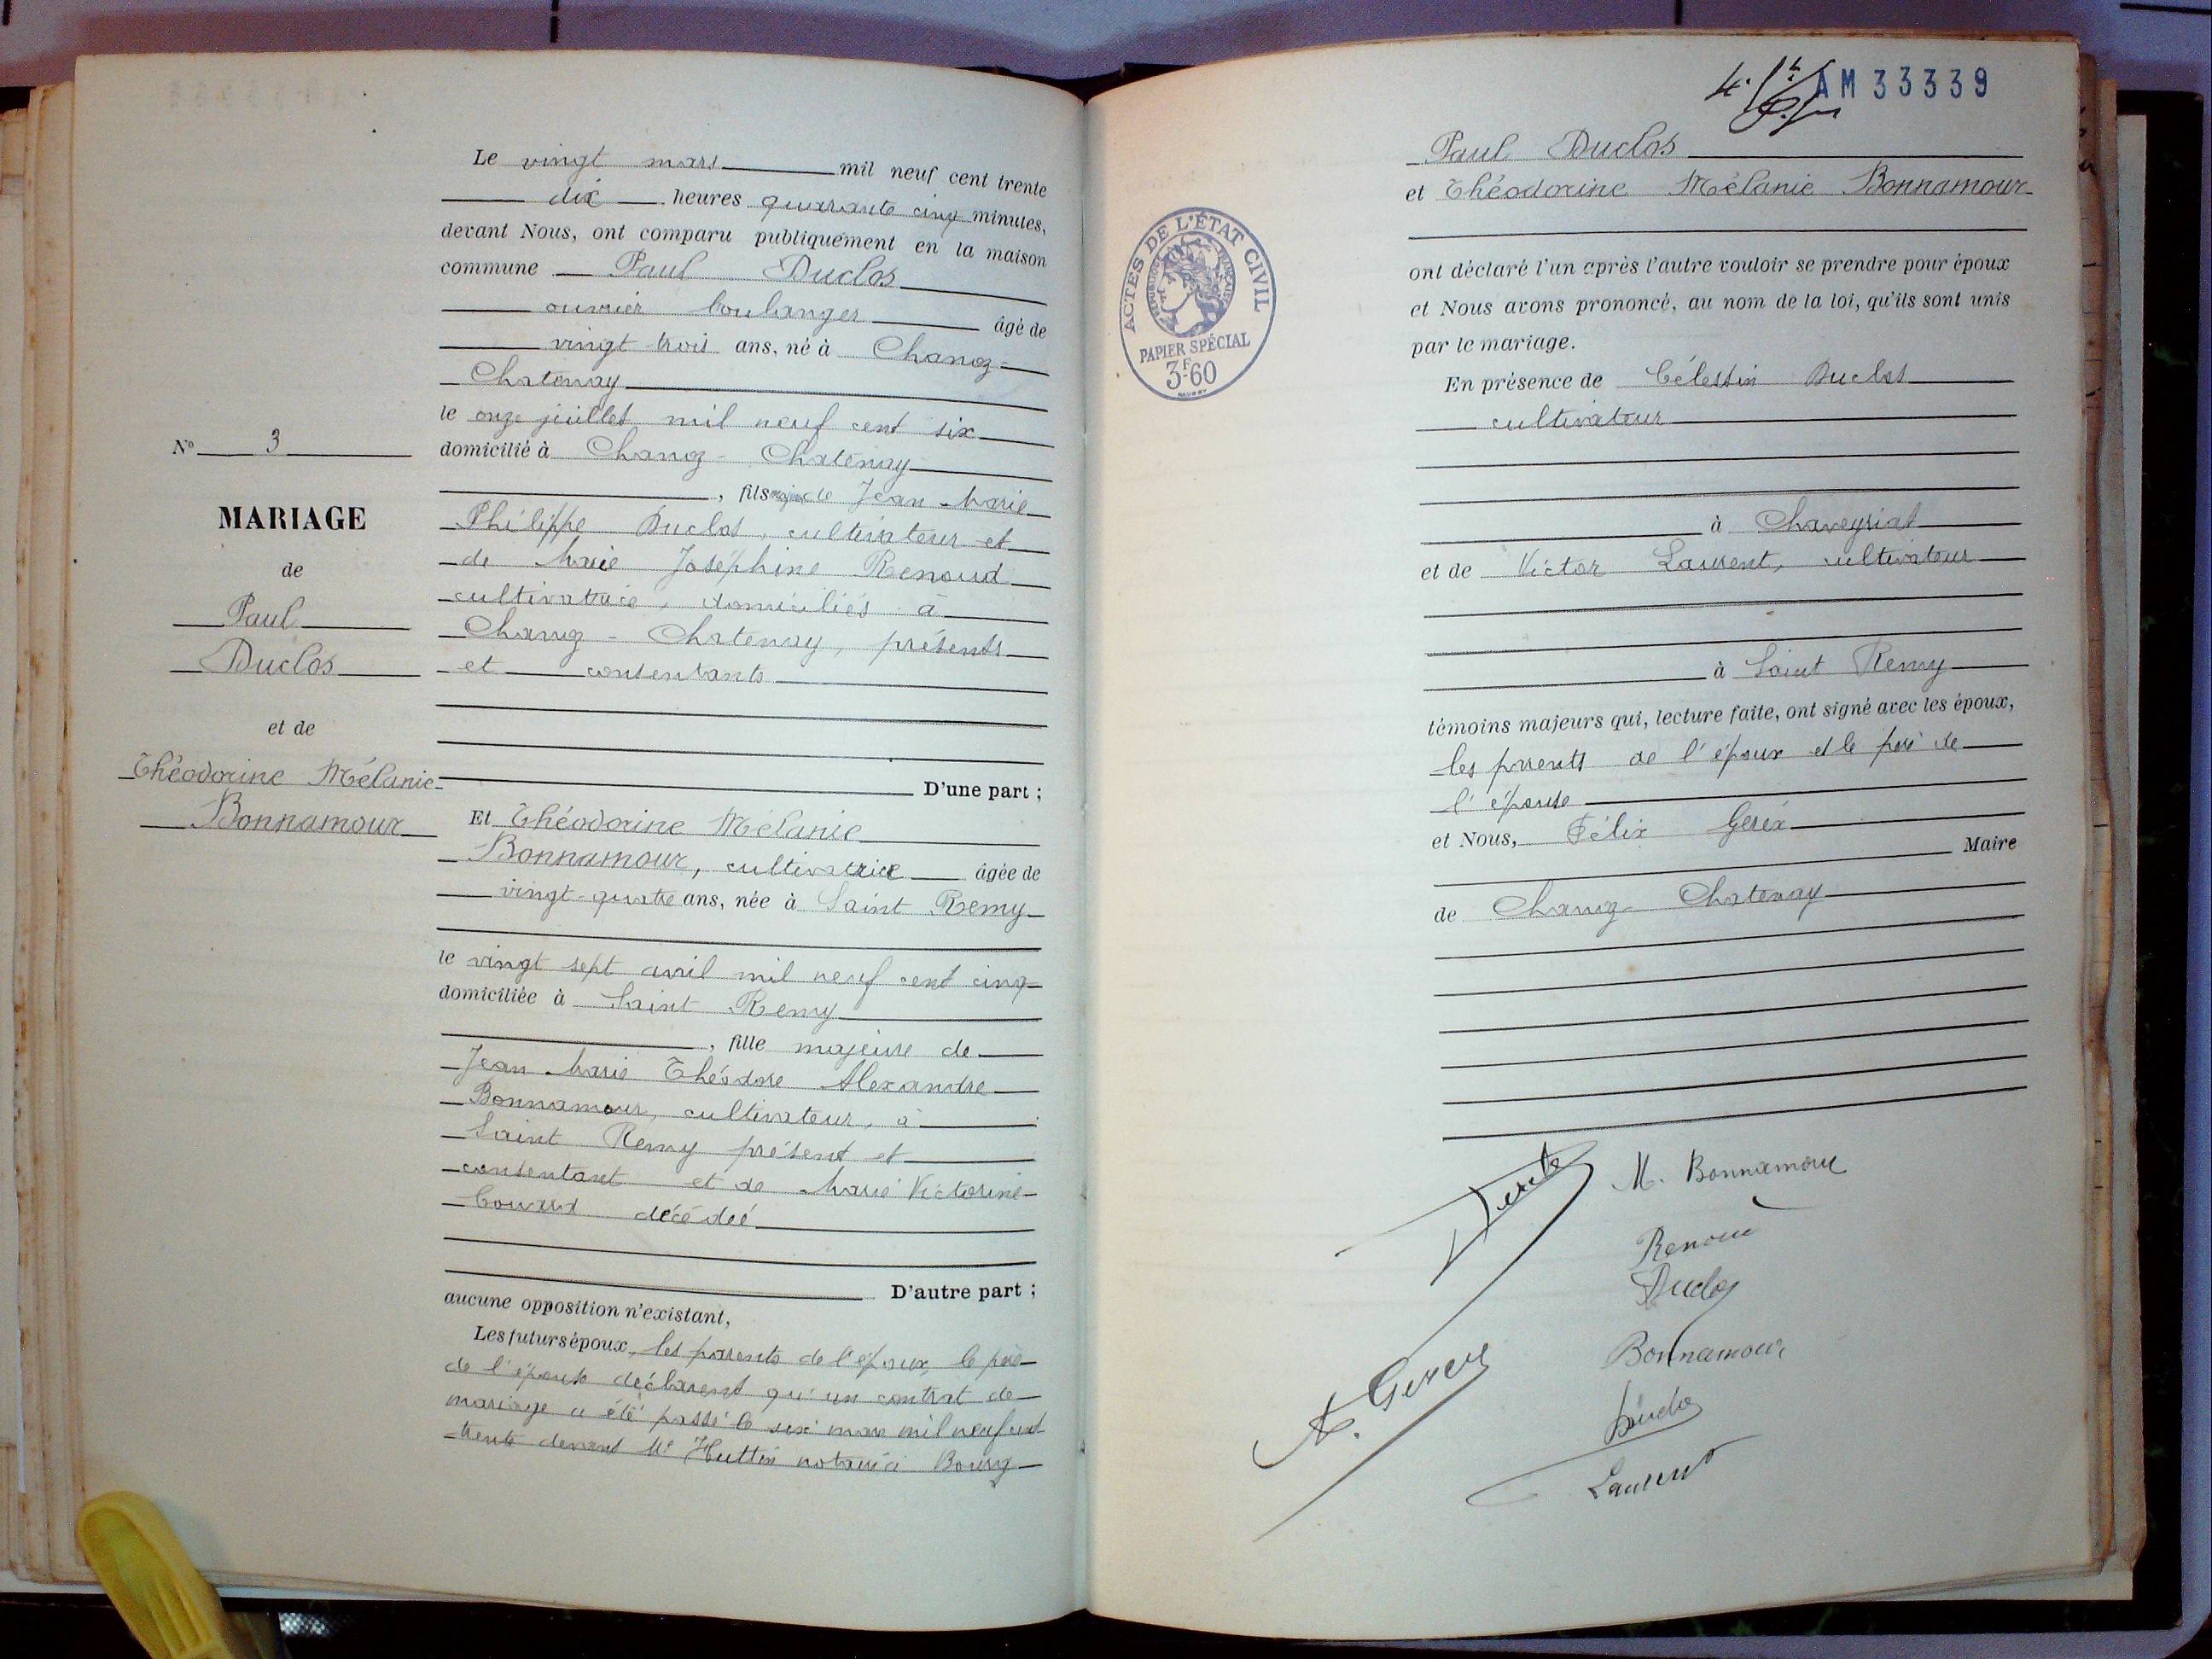 N° 3
MARIAGE
de
Paul
Duclos
et de
Théodorine Mélanie
Bonnamour
Le vingt mars mil neuf cent trente
dix heures quarante cinq minutes,
devant Nous, ont comparu publiquement en la maison
commune Paul Duclos
ouvrier boulanger âgé de
vingt-trois ans, né à Chanoz-
Chatenay
le onze juillet mil neuf cent six
domicilié à Chanoz-Chatenay
, fils majeur de Jean Marie
Philippe Duclos, cultivateur et
de Marie Joséphine Renoud
cultivatrice, domiciliés à
Chanoz-Chatenay, présents
et consentants
D'une part ;
Et Théodorine Mélanie
Bonnamour, cultivatrice âgée de
vingt-quatre ans, née à Saint Remy
le vingt sept avril mil neuf cent cinq
domiciliée à Saint Remy
, fille majeure de
Jean Marie Théodore Alexandre
Bonnamour, cultivateur, à
Saint Remy présent et
consentant et de Marie Victorine
décédée
D'autre part ;
aucune opposition n'existant,
Les futurs époux, les parents de l'époux, le père
de l'épouse déclarent qu'un contrat de
mariage a été passé le six mars mil neuf cent
trente devant Me Huttin notaire à Bourg
AM 33339
ACTES DE L'ÉTAT CIVIL
RÉPUBLIQUE FRANÇAISE
PAPIER SPÉCIAL
3F60
Paul Duclos
et Théodorine Mélanie Bonnamour
ont déclaré l'un après l'autre vouloir se prendre pour époux
et Nous avons prononcé, au nom de la loi, qu'ils sont unis
par le mariage.
En présence de Célestin Duclos
cultivateur
à Chaveyriat
et de Victor Laurent, cultivateur
à Saint Remy
témoins majeurs qui, lecture faite, ont signé avec les époux,
les parents de l'époux et le père de
l'épouse
et Nous, Félix
Maire
de Chanoz-Chatenay
M. Bonnamour
Renoud
Duclos
Bonnamour
Duclos
Laurent